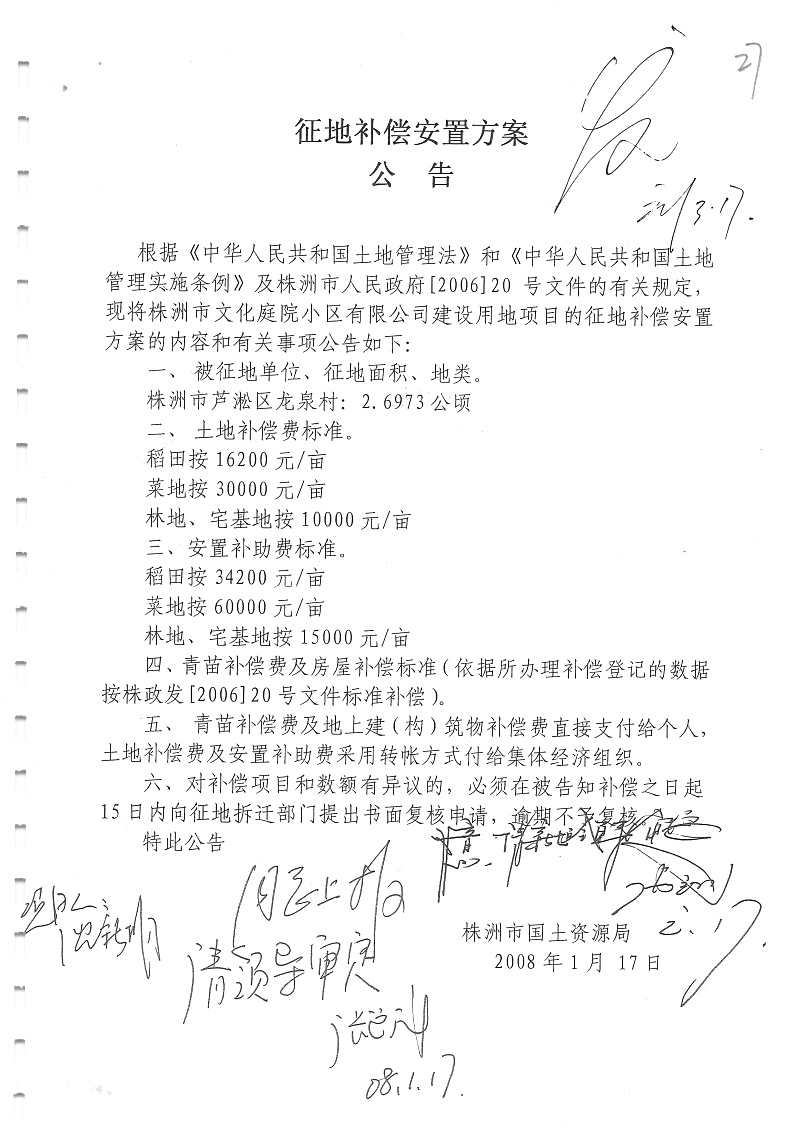 27
发
征地补偿安置方案
公 告
3.17.
根据《中华人民共和国土地管理法》和《中华人民共和国土地
管理实施条例》及株洲市人民政府[2006]20 号文件的有关规定,
现将株洲市文化庭院小区有限公司建设用地项目的征地补偿安置
方案的内容和有关事项公告如下:
一、 被征地单位、征地面积、地类。
株洲市芦淞区龙泉村: 2.6973公顷
二、 土地补偿费标准。
稻田按 16200 元/亩
菜地按 30000 元/亩
林地、宅基地按 10000 元/亩
三、安置补助费标准。
稻田按 34200 元/亩
菜地按 60000 元/亩
林地、宅基地按 15000 元/亩
四、青苗补偿费及房屋补偿标准(依据所办理补偿登记的数据
按株政发[2006]20 号文件标准补偿)。
五、 青苗补偿费及地上建(构)筑物补偿费直接支付给个人,
土地补偿费及安置补助费采用转帐方式付给集体经济组织。
六、对补偿项目和数额有异议的, 必须在被告知补偿之日起
15 日内向征地拆迁部门提出书面复核申请, 逾期不予复核。
特此公告
上报
请领导审定
株洲市国土资源局
2008 年 1 月 17 日
08.1.17.